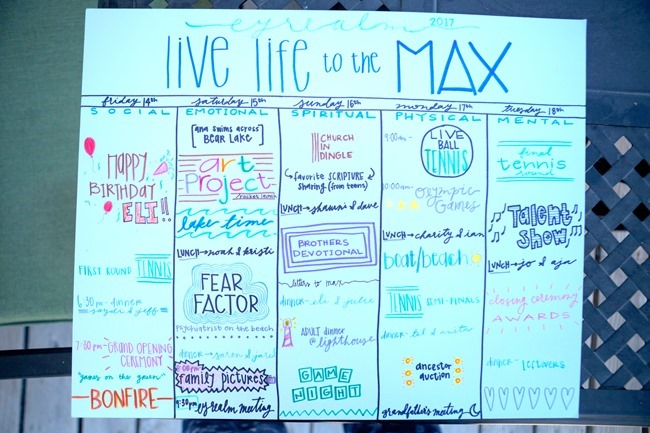 eyrealm 2017
live life to the MAX
friday 14th
SOCIAL
HAPPY
BIRTHDAY
ELI!!
FIRST ROUND TENNIS
6:30 pm dinner
snyder & jeff
7:00 pm GRAND OPENING
CEREMONY
"games on the green"
BONFIRE
saturday 15th
EMOTIONAL
[ana swims across]
BEAR LAKE
art
Project
lake time
LUNCH → noah & kristi
FEAR
FACTOR
psychiatrist on the beach
dinner → & jared
8:00 pm
family pictures
9:30 pm eyrealm meeting
sunday 16th
SPIRITUAL
CHURCH
IN
DINGLE
favorite SCRIPTURE
sharing (from teens)
LUNCH → shawni & dave
BROTHERS
DEVOTIONAL
letters to max
dinner - eli & julie
ADULT dinner
@ lighthouse
GAME
NIGHT
monday 17th
PHYSICAL
9:00 am -
LIVE
BALL
TENNIS
10:00 am
Olympic
Games
LUNCH → charity & ian
beat/beach
TENNIS SEMI-FINALS
dinner - tal & anita
ancestor
auction
grandfather's meeting
tuesday 18th
MENTAL
final
tennis
round
Talent
Show
LUNCH → jo & aja
closing ceremony
AWARDS
dinner - leftovers